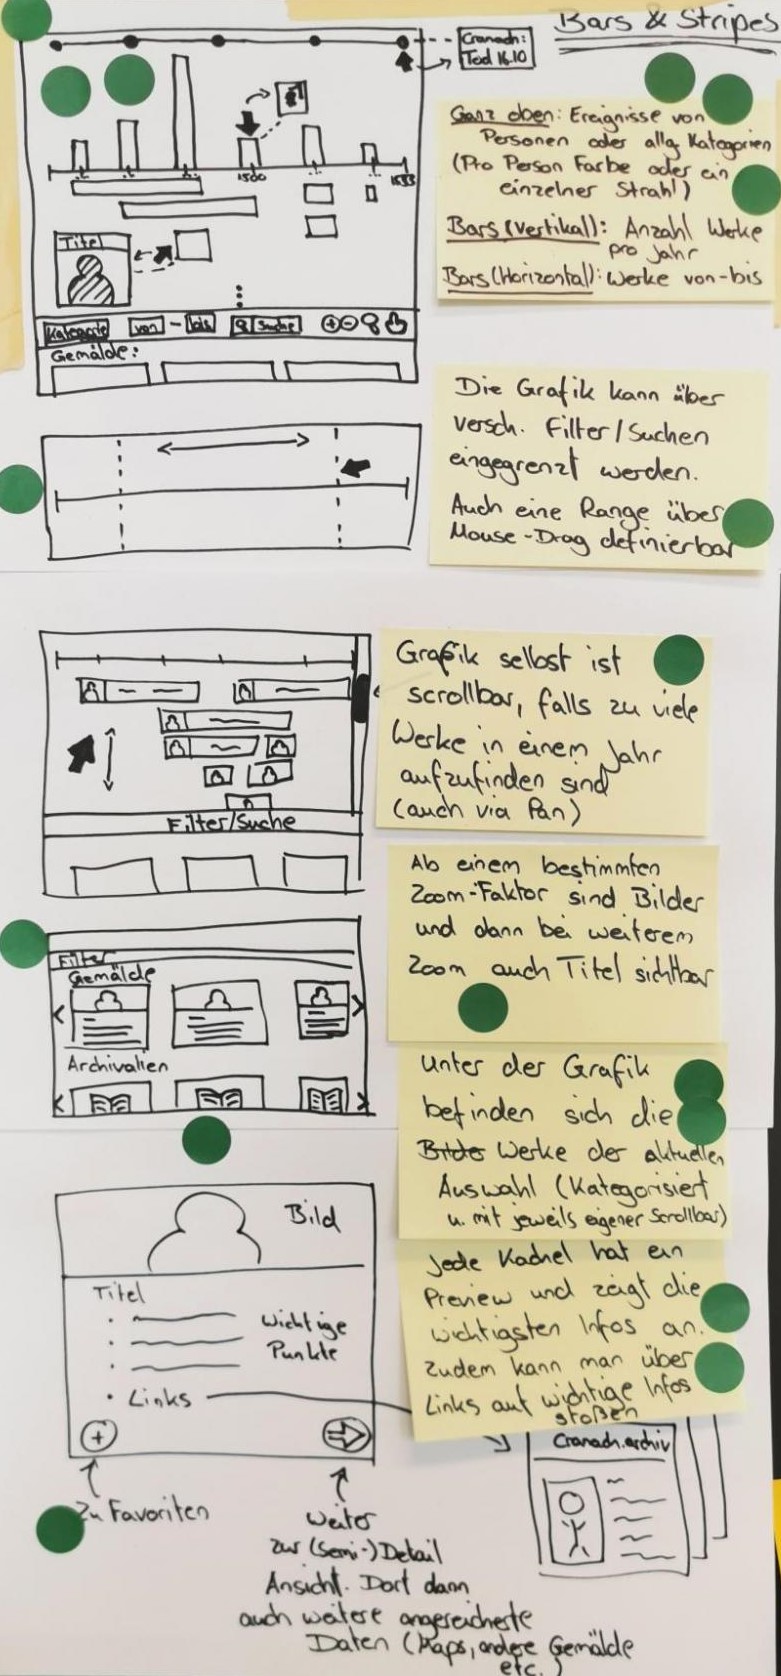 Bars & Stripes
Cranach:
Tod 16.10
Ganz oben: Ereignisse von
Personen oder allg. Kategorien
(Pro Person Farbe oder ein
einzelner Strahl)
Bars (Vertikal): Anzahl Werke
pro Jahr
Bars (Horizontal): Werke von-bis
1500
1553
Titel
Kategorie von - bis Suche
Gemälde:
Die Grafik kann über
versch. Filter/Suchen
eingegrenzt werden.
Auch eine Range über
Mouse-Drag definierbar
Grafik selbst ist
scrollbar, falls zu viele
Werke in einem Jahr
aufzufinden sind
(auch via Pan)
Filter/Suche
Ab einem bestimmten
Zoom-Faktor sind Bilder
und dann bei weiterem
Zoom auch Titel sichtbar
Filter
Gemälde
Archivalien
Unter der Grafik
befinden sich die
Bilder Werke der aktuellen
Auswahl (Kategorisiert
u. mit jeweils eigener Scrollbar)
Bild
Titel
Wichtige
Punkte
Links
Jede Kachel hat ein
Preview und zeigt die
wichtigsten Infos an.
Zudem kann man über
Links auf wichtige Infos
stoßen
Cranach.archiv
Zu Favoriten
Weiter
zur (Semi-)Detail
Ansicht. Dort dann
auch weitere angereicherte
Daten (Maps, andere Gemälde
etc.)